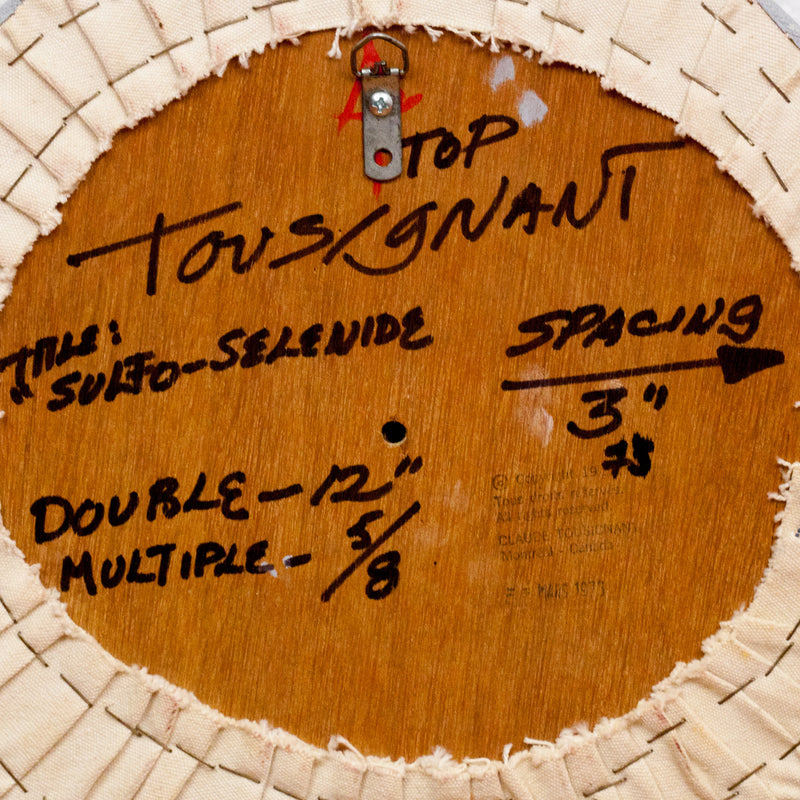 TOP
TOUSIGNANT
TITLE:
"SULFO-SELENIDE
SPACING
3"
DOUBLE-12"
MULTIPLE-5/8
© Copyright, 1975
Tous droits réservés.
All rights reserved
CLAUDE TOUSIGNANT,
Montréal - Canada
MARS 1973